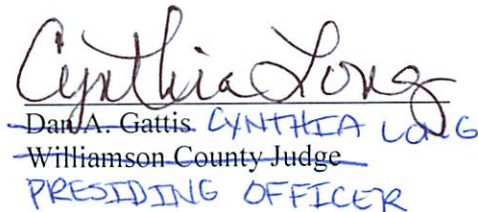 Cynthia Long
Dan A. Gattis CYNTHIA LONG
Williamson County Judge
PRESIDING OFFICER